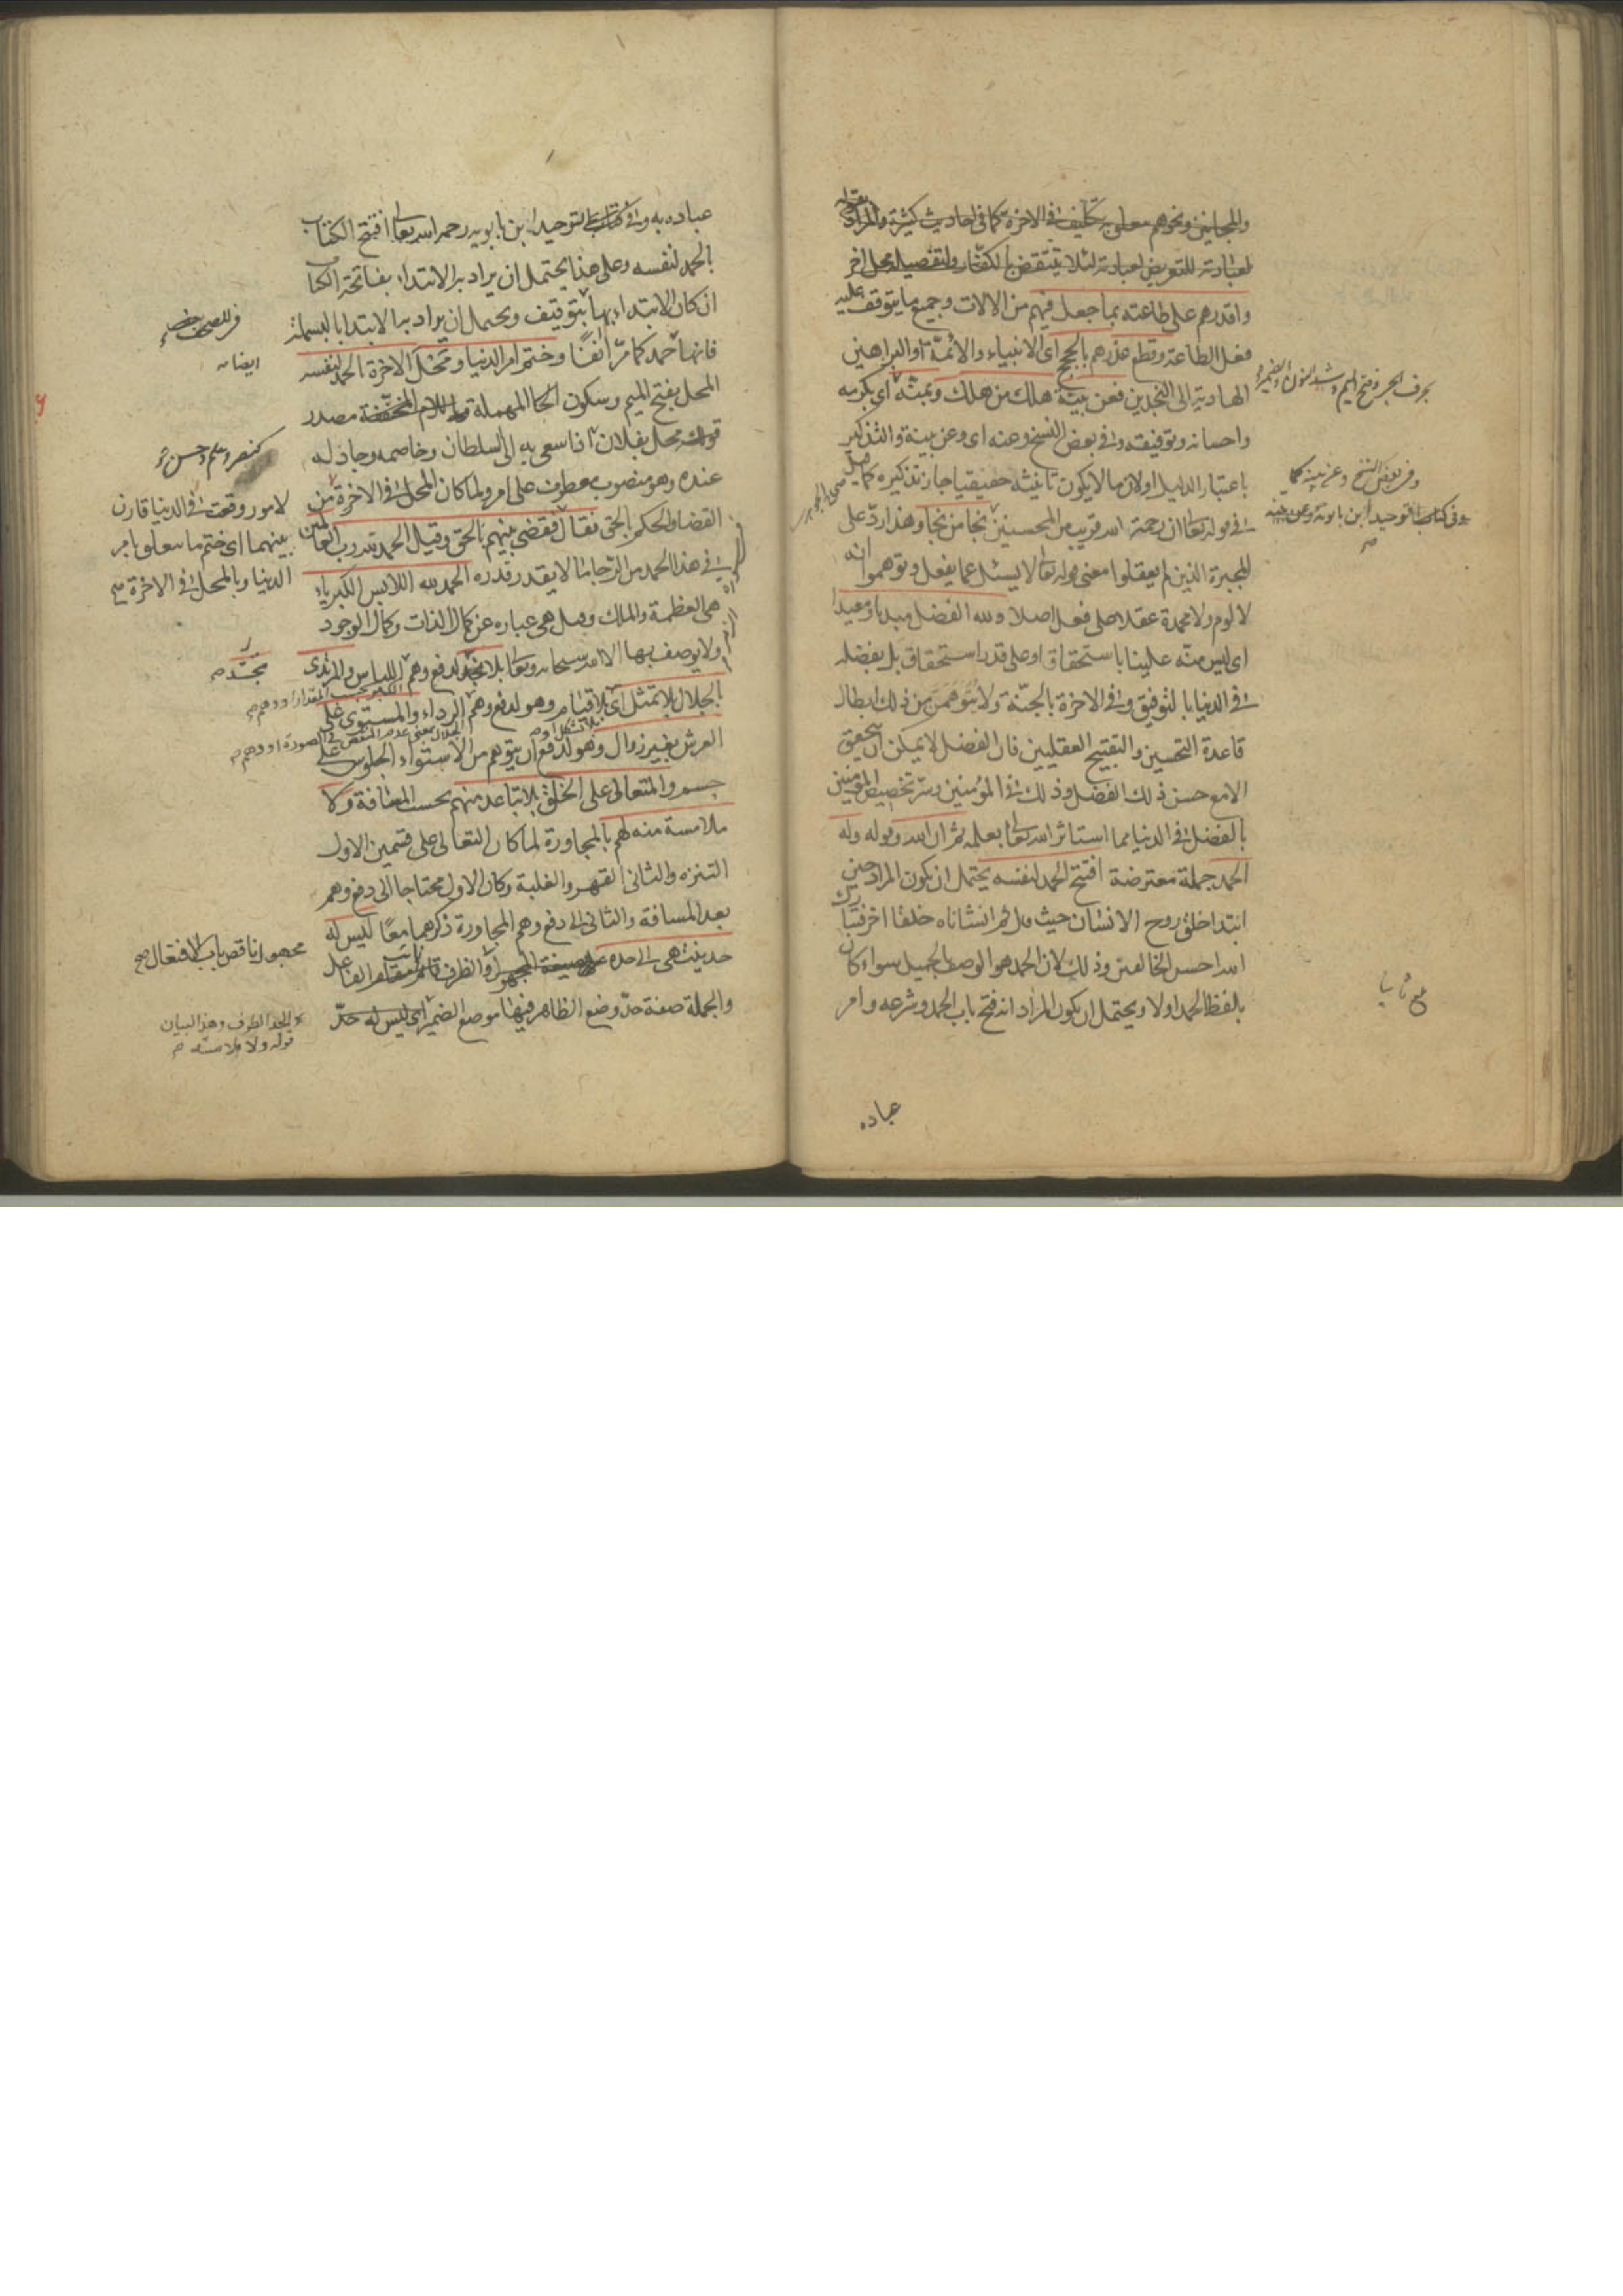 والمجانين ونحوهم معلق بتكليف في الاخرة كما في احاديث كثيرة والمراد
لعبادته للتعريض لعبادته لئلا ينتقض بالكفار والتفصيل محل اخر
واقدرهم على طاعته بما جعل فيهم من الالات وجميع ما يتوقف عليه
فعل الطاعة وقطع عذرهم بالحجج اى الانبياء والائمة او البراهين
الهادية الى النجدين فعن بينة هلك من هلك وبمنه اى بكرمه
واحسانه وتوفيقه وفى بعض النسخ وعنه اى وعن بينة والتذكير
باعتبار الدليل اولان ما لا يكون تانيثه حقيقيا جاز تذكيره كما قيل
فى قوله تعا ان رحمة الله قريب من المحسنين نجا من نجا وهذا ردّ على
المجبرة الذين لم يعقلوا معنى قوله تعالى لا يسئل عما يفعل وتوهموا انه
لا لوم ولا محمدة عقلا على فعل اصلا ولله الفضل مبديا ومعيدا
اى ليس منّه علينا باستحقاق او على قدر استحقاق بل بفضله
فى الدنيا بالتوفيق وفى الاخرة بالجنّة ولا تتوهمن من ذلك ابطال
قاعدة التحسين والتقبيح العقليين فان الفضل لا يمكن ان يتحقق
الا مع حسن ذلك الفضل وذلك فى المؤمنين وسرّ تخصيص المؤمنين
بالفضل فى الدنيا مما استاثر الله تعا بعلمه ثم ان الله وقوله وله
الحمد جملة معترضة افتتح الحمد لنفسه يحتمل ان يكون المراد حين
ابتدا خلق روح الانسان حيث قال ثم انشاناه خلقا اخر فتبارك
الله احسن الخالقين وذلك لان الحمد هو الوصف بالجميل سواء كان
بلفظ الحمد اولا ويحتمل ان يكون المراد انه فتح باب الحمد وشرعه وامر
وفى بعض النسخ وعن بينة كما
فى كتاب التوحيد لابن بابويه
عباده
عباده به وفى كتاب التوحيد لابن بابويه رحمه الله تعالى افتتح الكتاب
بالحمد لنفسه وعلى هذا يحتمل ان يراد به الابتداء بفاتحة الكتاب
ان كان الابتداء بها بتوقيف ويحتمل ان يراد به الابتدا بالبسملة
فانها حمد كما مرّ انفًا وختم امر الدنيا ومحل الاخرة بالحمد لنفسه
المحل بفتح الميم وسكون الحا المهملة واللام المخففة مصدر
قولك محل بفلان اذا سعى به الى السلطان وخاصمه وجادله
عنده وهو منصوب معطوف على امر ولما كان المحل فى الاخرة من
القضا والحكم بالحق فقال فقضى بينهم بالحق وقيل الحمد لله رب العالمين
فى هذا الحمد من الرجا ما لا يقدر قدره الحمد لله اللابس الكبرياء
هى العظمة والملك وقيل هى عبارة عن كمال الذات وكمال الوجود
ولا يوصف بها الا الله سبحانه وتعا بلا تجسد لدفع وهم اللباس والمرتدى
بالجلال بلا تمثل اى بلا قيام وهو لدفع وهم الرداء والمستوى على
العرش بغير زوال وهو لدفع ان يتوهم من الاستواء الجلوس على
جسم والمتعالى على الخلق بلا تباعد منهم بحسب المسافة ولا
ملامسة منه لهم بالمجاورة لما كان التعالى على قسمين الاول
التنزه والثانى القهر والغلبة وكان الاول محتاجا الى دفع وهم
بعد المسافة والثانى الى دفع وهم المجاورة ذكرهما معًا ليس له
حد ينتهى الى حده على صيغة المجهول والظرف قائم مقام الفاعل
والجملة صفة حدّ وضع الظاهر فيها موضع الضمير اى ليس له حدّ
ايضا
لامور وقعت فى الدنيا قارن
بينهما اى ختم ما يتعلق بامر
الدنيا وبالمحل فى الاخرة
مجهول ناقص باب الافتعال صح
قوله ولا ملامسة